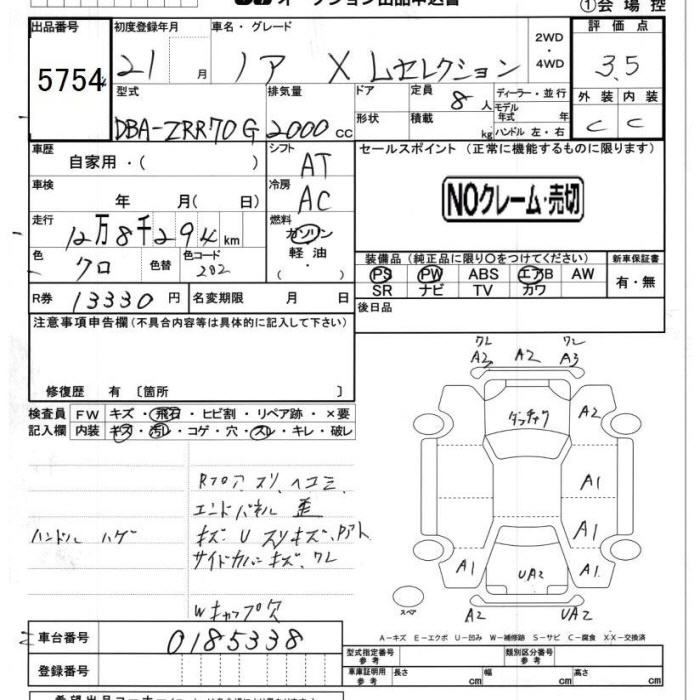 オークション出品申込書
①会場控
出品番号 5754
初度登録年月 21 月
車名・グレード ノア X Lセレクション
2WD・4WD
評価点 3.5
型式 DBA-ZRR70G
排気量 2000 cc
ドア
形状
定員 8 人
積載 kg
ディーラー・並行
モデル年式 年
ハンドル 左・右
外装 C 内装 C
車歴 自家用・( )
シフト AT
セールスポイント (正常に機能するものに限ります)
NOクレーム・売切
車検 年 月( 日)
冷房 AC
走行 12万8千294 km
燃料 ガソリン 軽油・( )
色 クロ 色替 色コード 202
装備品 (純正品に限り○をつけてください)
新車保証書 有・無
PS PW ABS エアB AW
SR ナビ TV カワ
R券 13330 円 名変期限 月 日
後日品
注意事項申告欄 (不具合内容等は具体的に記入して下さい)
修復歴 有 〔箇所 〕
検査員記入欄
FW キズ・飛石・ヒビ割・リペア跡・×要
内装 キズ・汚れ・コゲ・穴・スレ・キレ・破レ
ハンドル ハゲ
Rフロア スリ、ヘコミ、
エンドパネル 歪
キズ U スリキズ、Pアト
サイドカバーキズ、ワレ
Wキャップ欠
ワレ ワレ
A2 A2 A3
A2
A1
A1
A1 A1
UA2
A2 UA2
スペア
A-キズ E-エクボ U-凹み W-補修跡 S-サビ C-腐食 XX-交換済
車台番号 0185338
登録番号
型式指定番号 参考
類別区分番号 参考
車庫証明用 参考 長さ cm 幅 cm 高さ cm